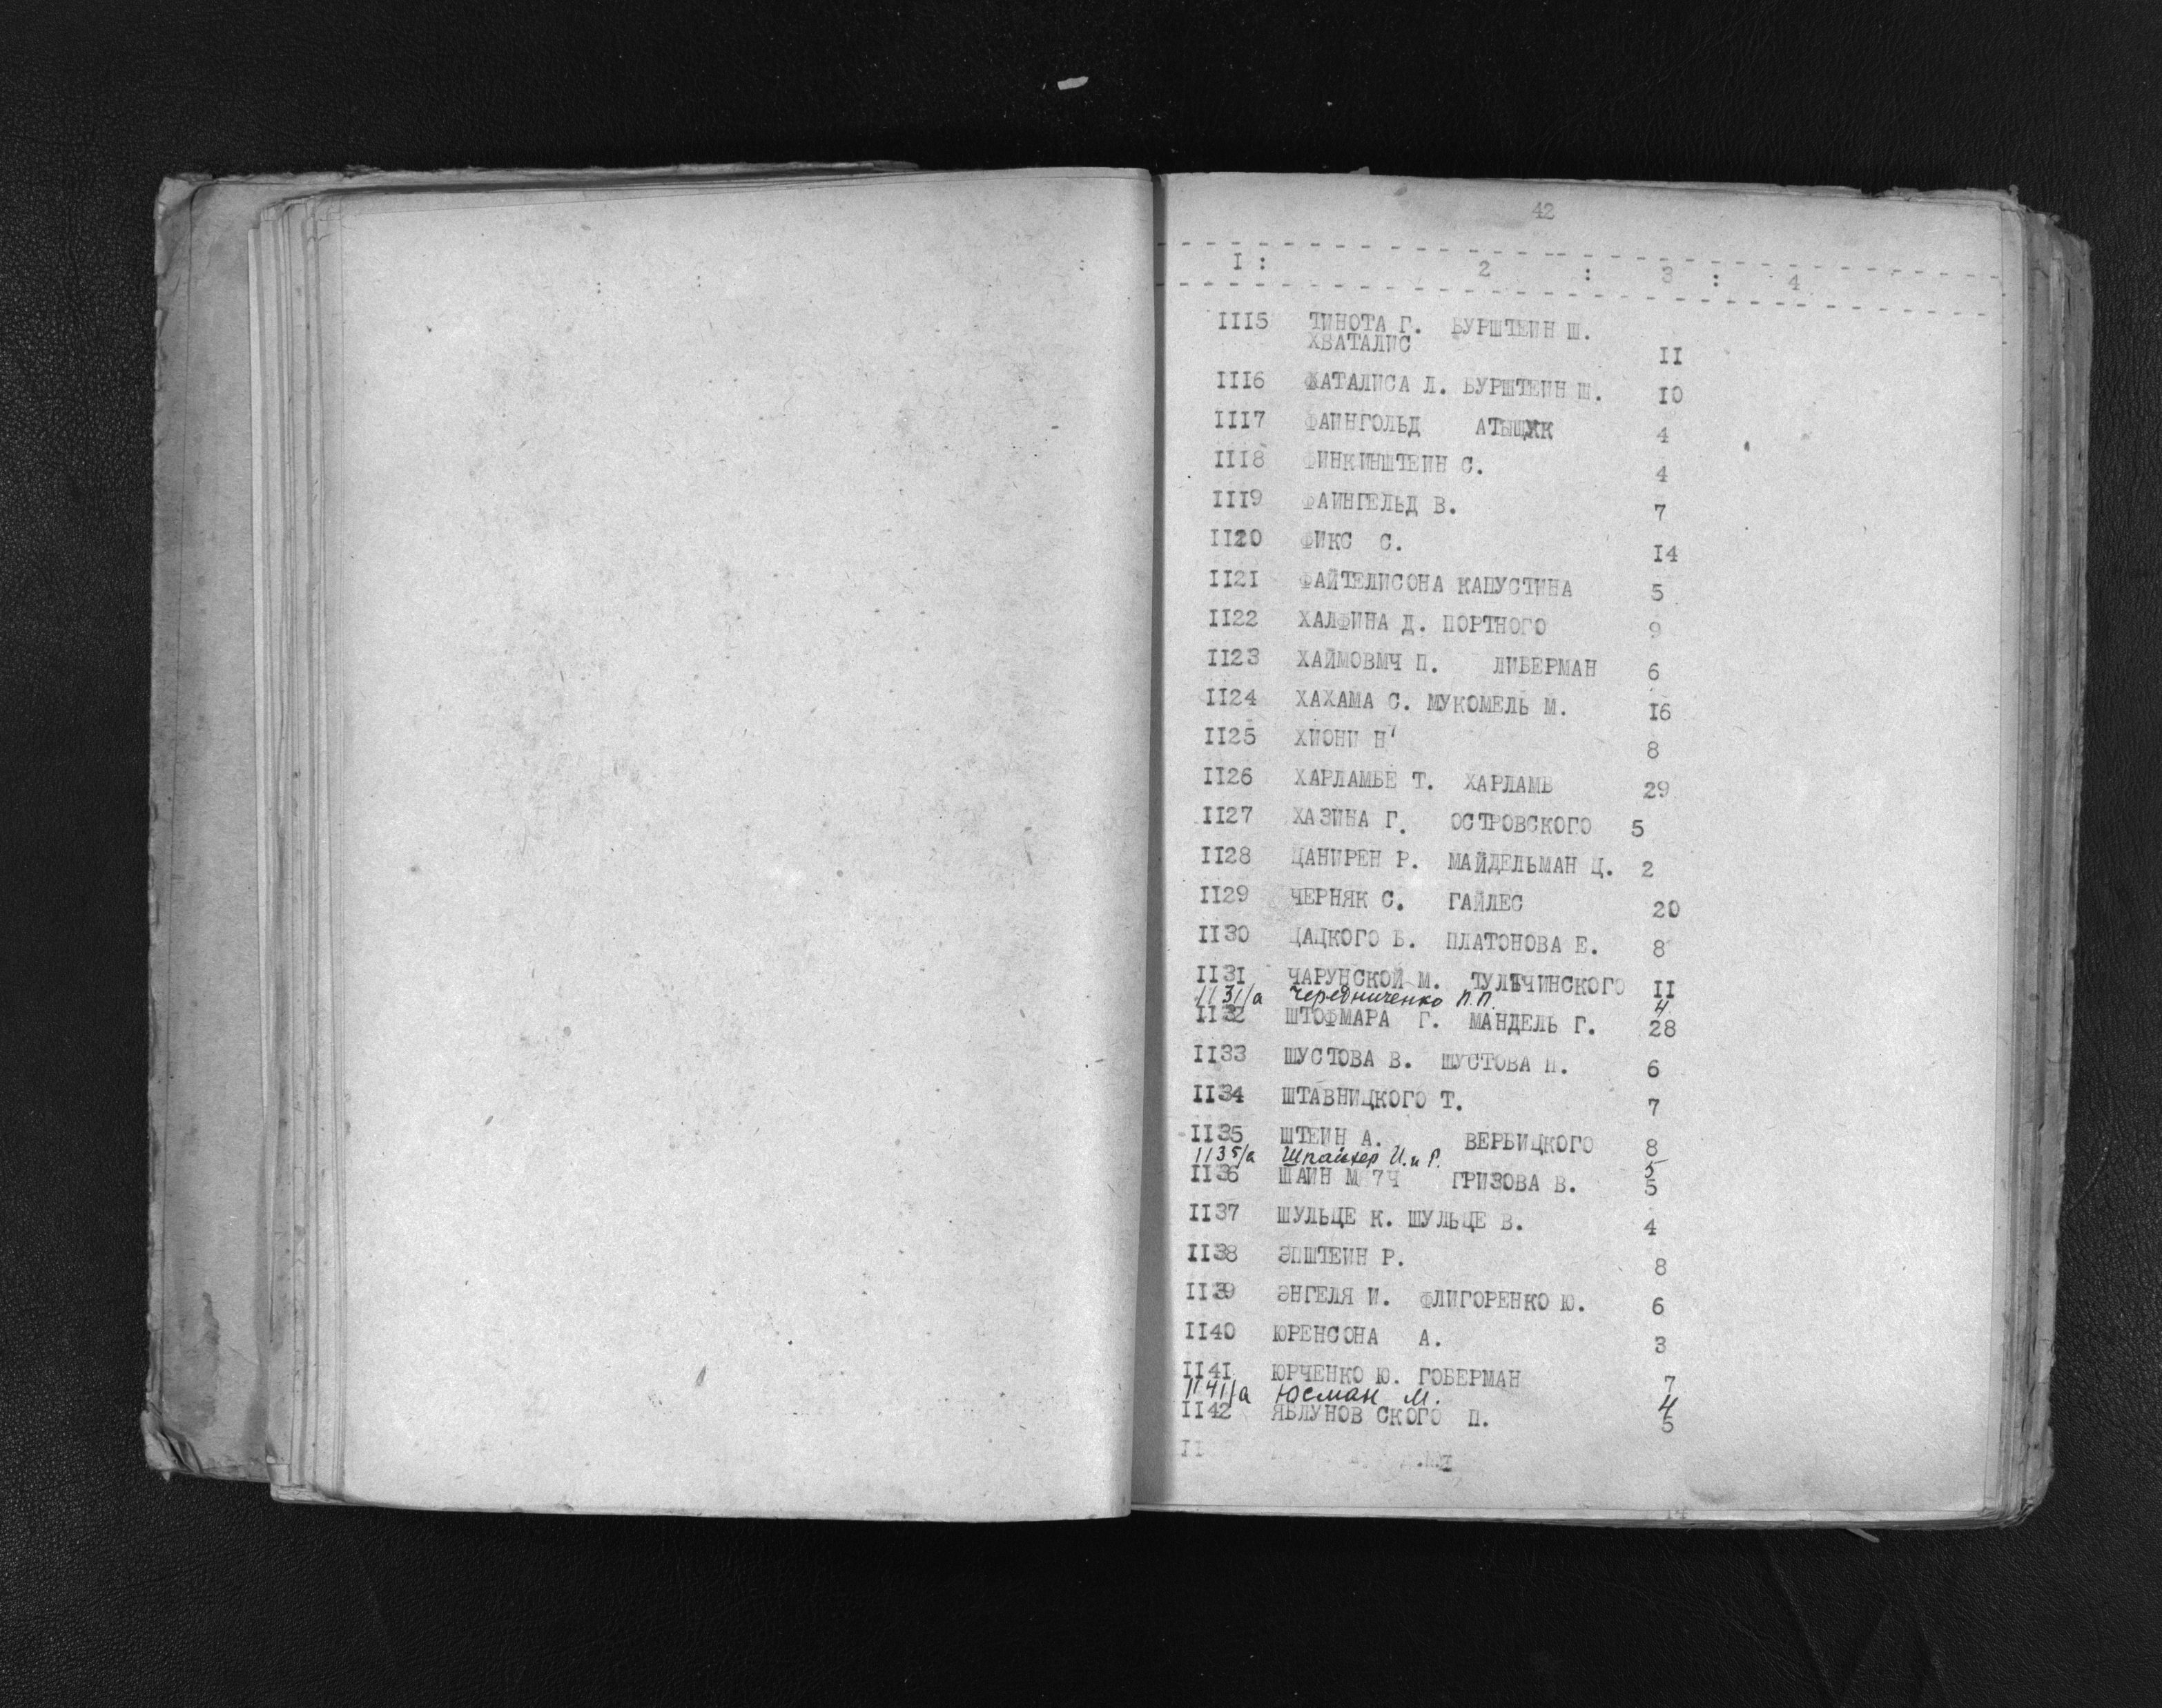 42
I : 2 : 3 : 4
III5 ТИНОТА Г. БУРШТЕИН Ш.
ХВАТАЛИС II
III6 ФАТАЛИСА Л. БУРШТЕИН Ш. IO
III7 ФАИНГОЛЬД 4
III8 ФИНКИНШТЕИН С. 4
III9 ФАИНГЕЛЬД В. 7
II20 ФИКС С. I4
II2I ФАЙТЕЛИСОНА КАПУСТИНА 5
II22 ХАЛФИНА Д. ПОРТНОГО 9
II23 ХАЙМОВМЧ П. ЛИБЕРМАН 6
II24 ХАХАМА С. МУКОМЕЛЬ М. I6
II25 ХИОНИ Н' 8
II26 ХАРЛАМБЕ Т. ХАРЛАМБ 29
II27 ХАЗИНА Г. ОСТРОВСКОГО 5
II28 ЦАНИРЕН Р. МАЙДЕЛЬМАН Ц. 2
II29 ЧЕРНЯК С. ГАЙЛЕС 20
II30 ЦАЦКОГО Б. ПЛАТОНОВА Е. 8
II3I ЧАРУНСКОЙ М. ТУЛЬЧИНСКОГО II
1131/а Чередниченко П.П. 4
II32 ШТОФМАРА Г. МАНДЕЛЬ Г. 28
II33 ШУСТОВА В. ШУСТОВА П. 6
II34 ШТАВНИЦКОГО Т. 7
II35 ШТЕИН А. ВЕРБИЦКОГО 8
1135/а Шпайхер И. и Р. 5
II36 ШАИН М 7Ч ГРИЗОВА В. 5
II37 ШУЛЬЦЕ К. ШУЛЬЦЕ В. 4
II38 ЭПШТЕИН Р. 8
II39 ЭНГЕЛЯ И. ФЛИГОРЕНКО Ю. 6
II40 ЮРЕНСОНА А. 3
II4I. ЮРЧЕНКО Ю. ГОБЕРМАН 7
1141/а Юсман М. 4
II42 ЯБЛУНОВ СКОГО П. 5
II